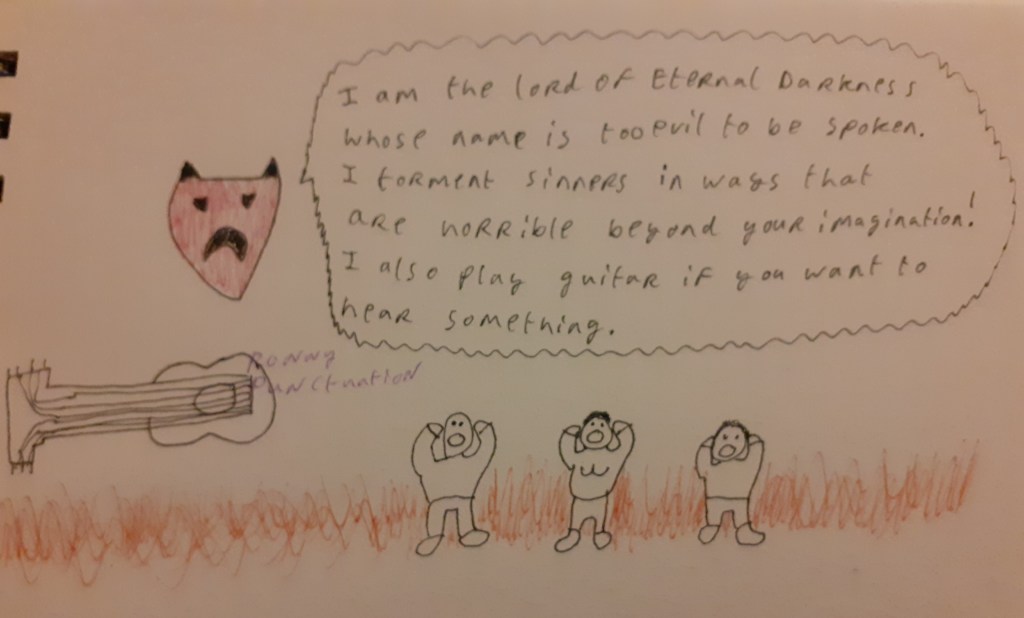 I am the lord of Eternal Darkness
whose name is too evil to be spoken.
I torment sinners in ways that
are horrible beyond your imagination!
I also play guitar if you want to
hear something.
Ronny
Punctuation